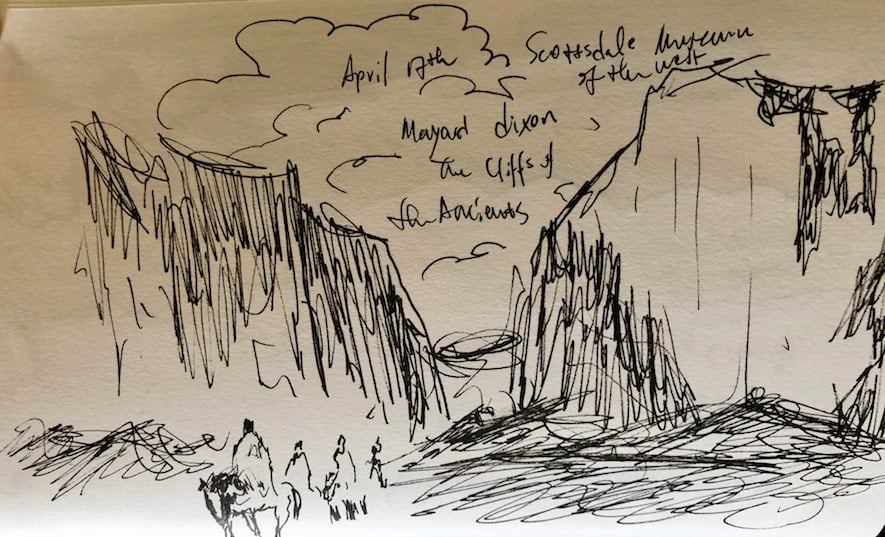 April 17th
Scottsdale Museum
of the west
Mayard dixon
the Cliffs of
the Ancients